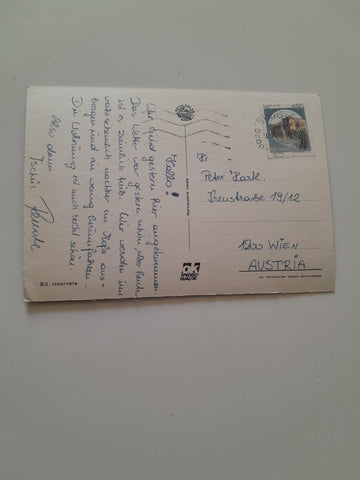 Hallo!
Wir sind gestern hier angekommen.
Das Wetter war gestern schön, aber heute
ist es ziemlich trüb. Wir werden uns
wahrscheinlich nachher ein Mofa aus-
borgen und ein wenig herumfahren.
Die Wohnung ist auch recht schön.
Also dann
Tschüß
Ed. riservata
Peter
Treustraße 19/12
1200 WIEN
AUSTRIA